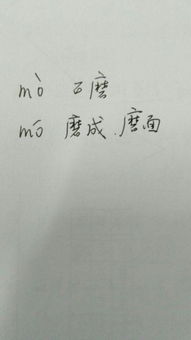 mò 石磨
mó 磨成.磨面